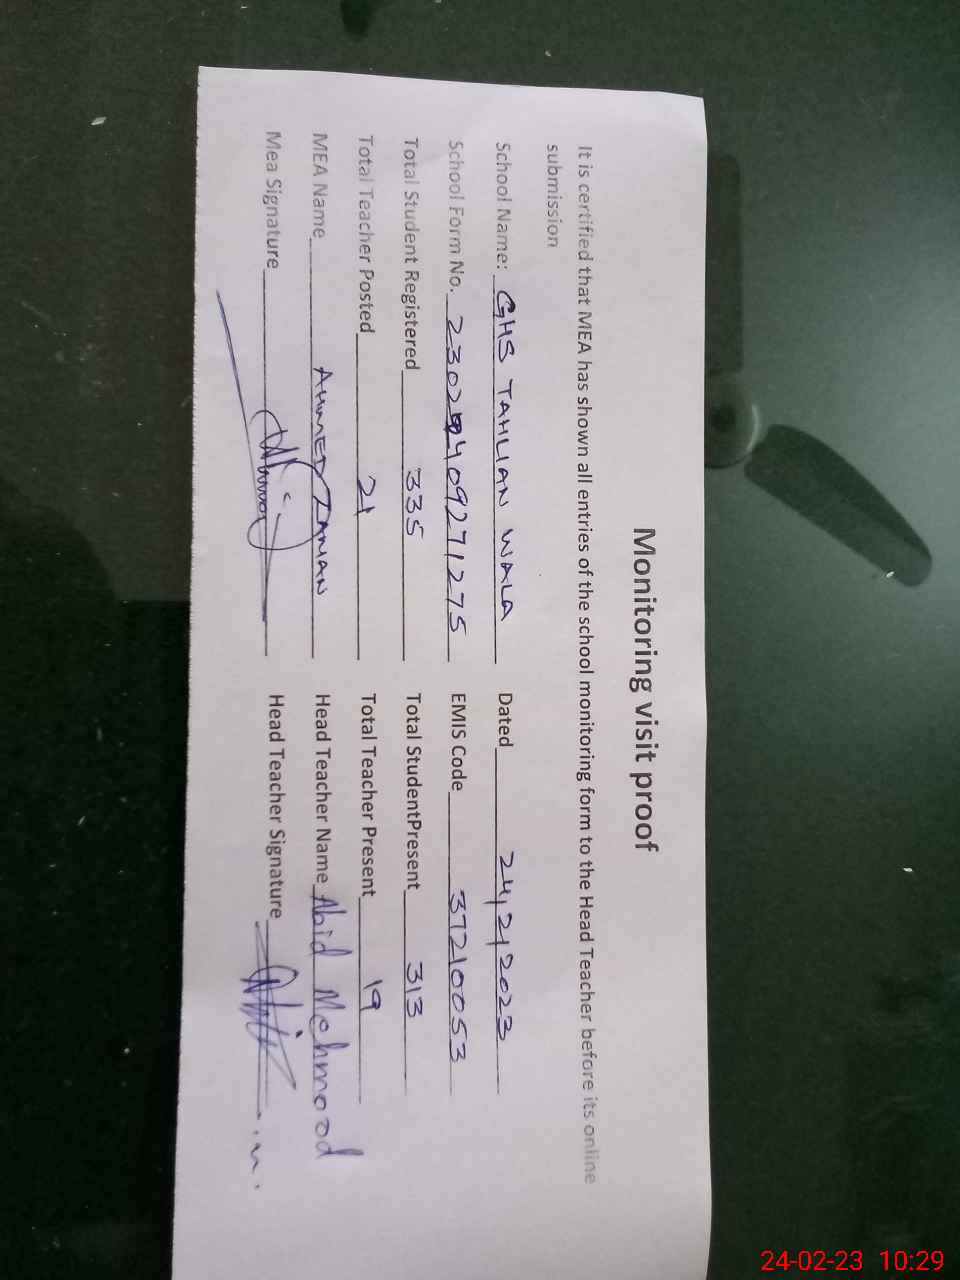 Monitoring visit proof
It is certified that MEA has shown all entries of the school monitoring form to the Head Teacher before its online
submission
School Name: GHS TAHLIAN WALA Dated 24/2/2023
School Form No. 2302409271275 EMIS Code 37210053
Total Student Registered 335 Total StudentPresent 313
Total Teacher Posted 21 Total Teacher Present 19
MEA Name AHMED ZAMAN Head Teacher Name Abid Mehmood
Mea Signature Head Teacher Signature
24-02-23 10:29